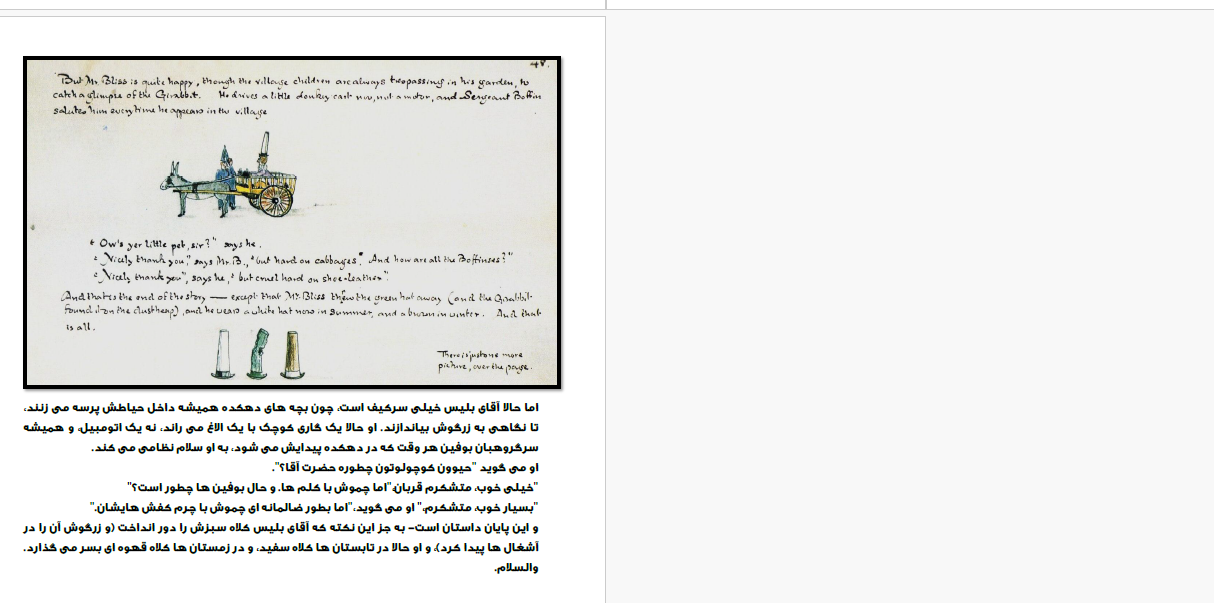 48.
But Mr. Bliss is quite happy, though the village children are always trespassing in his garden, to
catch a glimpse of the Girabbit. He drives a little donkey cart now, not a motor, and Sergeant Boffin
salutes him every time he appears in the village
"Ow's yer little pet, sir?" says he.
"Nicely thank you," says Mr. B., "but hard on cabbages". And how are all the Boffinses?"
"Nicely thank you", says he, "but cruel hard on shoe-leather".
(And that is the end of the story — except that Mr. Bliss threw the green hat away (and the Girabbit
found it on the dustheap), and he wears a white hat now in summer, and a brown in winter. And that
is all.
There is just one more
picture, over the page.
اما حالا آقای بلیس خیلی سرکیف است، چون بچه های دهکده همیشه داخل حیاطش پرسه می زنند،
تا نگاهی به زرگوش بیاندازند. او حالا یک گاری کوچک با یک الاغ می راند، نه یک اتومبیل، و همیشه
سرگروهبان بوفین هر وقت که در دهکده پیدایش می شود، به او سلام نظامی می کند.
او می گوید "حیوون کوچولوتون چطوره حضرت آقا؟".
"خیلی خوب، متشکرم قربان،"اما چموش با کلم ها. و حال بوفین ها چطور است؟"
"بسیار خوب، متشکرم،" او می گوید،"اما بطور ضالمانه ای چموش با چرم کفش هایشان."
و این پایان داستان است- به جز این نکته که آقای بلیس کلاه سبزش را دور انداخت (و زرگوش آن را در
آشغال ها پیدا کرد)، و او حالا در تابستان ها کلاه سفید، و در زمستان ها کلاه قهوه ای بسر می گذارد.
والسلام.